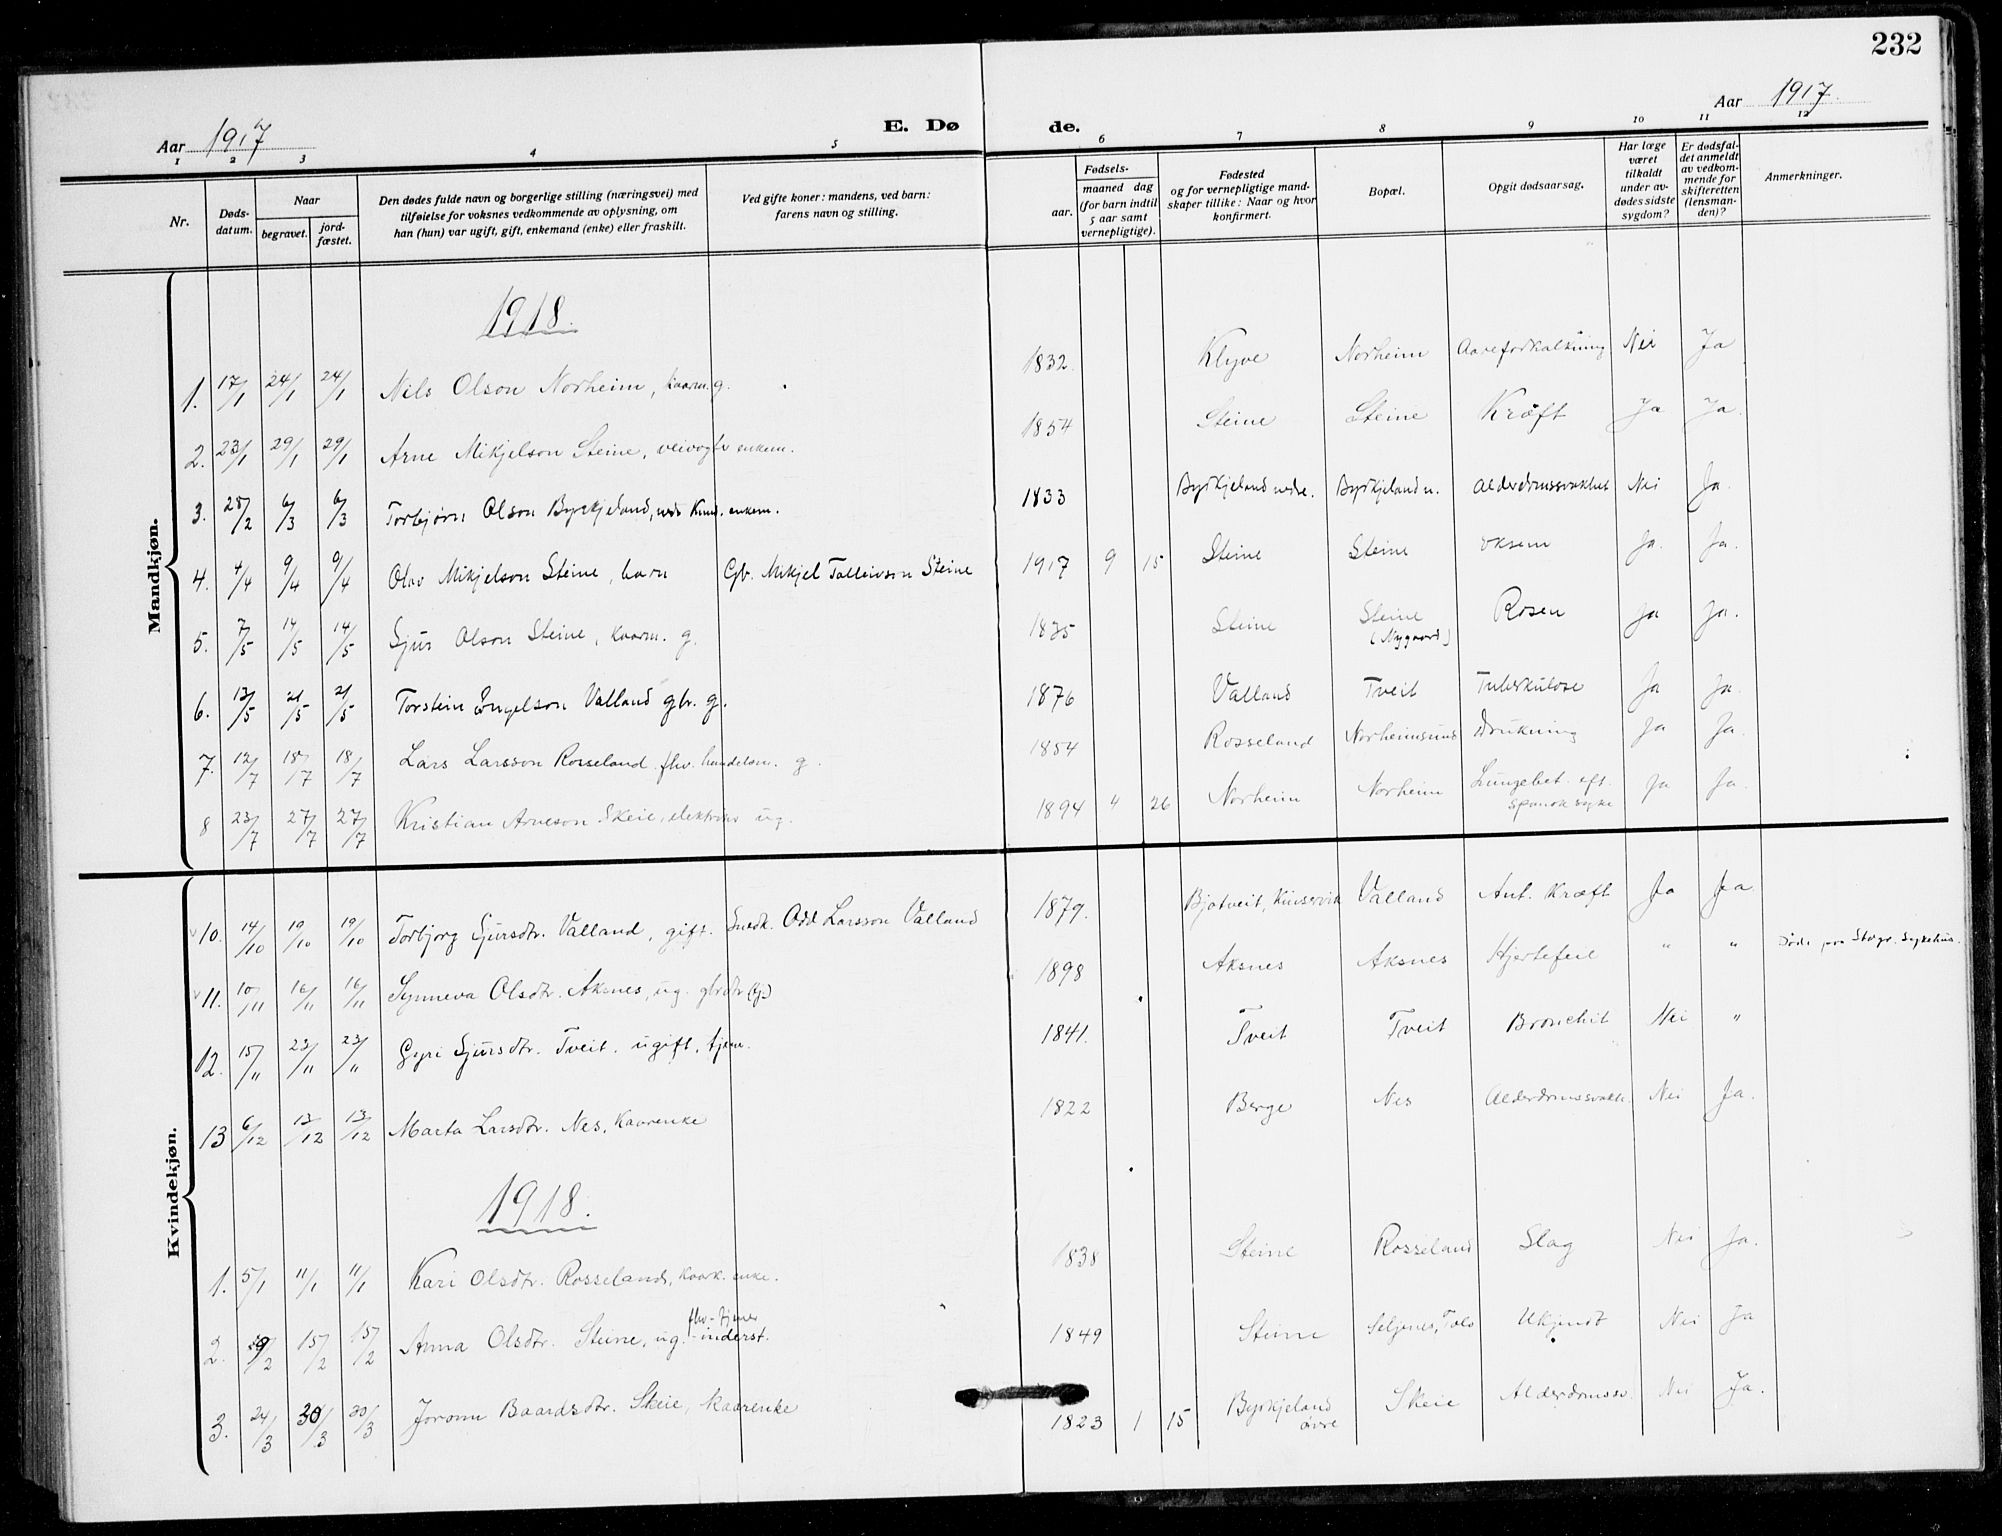 232
Aar 1917 E. Døde. Aar 1917.
1 2 3 4 5 6 7 8 9 10 11 12
Nr.
Døds-
datum.
Naar
begravet.
jord-
fæstet.
Den dødes fulde navn og borgerlige stilling (næringsvei) med
tilføielse for voksnes vedkommende av oplysning, om
han (hun) var ugift, gift, enkemand (enke) eller fraskilt.
Ved gifte koner: mandens, ved barn:
farens navn og stilling.
Fødsels-
aar.
maaned dag
(for barn indtil
5 aar samt
vernepligtige).
Fødested
og for vernepligtige mand-
skaper tillike: Naar og hvor
konfirmert.
Bopæl.
Opgit dødsaarsag.
Har læge
været
tilkaldt
under av-
dødes sidste
sygdom?
Er dødsfal-
det anmeldt
av vedkom-
mende for
skifteretten
(lensman-
den)?
Anmerkninger.
Mandkjøn.
1918.
1. 17/1 24/1 24/1 Nils Olson Norheim, kaarm. g. 1832. Klyve Norheim Aareforkalkning Nei Ja
2. 23/1 29/1 29/1 Arne Mikjelson Steine, veivogter enkem. 1854 Steine Steine Kræft Ja Ja.
3. 25/2 6/3 6/3 Torbjørn Olson Byrkjeland, nedre enkem. 1833 Byrkjeland nedre. Byrkjeland n. Alderdomssvakhet Nei Ja.
4. 4/4 9/4 9/4 Olav Mikjelson Steine, barn Gbr. Mikjel Tolleivson Steine 1917 9 15 Steine Steine Ja. Ja.
5. 7/5 14/5 14/5 Sjur Olson Steine, kaarm. g. 1835 Steine Steine (Nygaard) Rosen Ja Ja.
6. 13/5 21/5 21/5 Torstein Engelson Valland gbr. g. 1876 Valland Tveit Tuberkulose Ja Ja.
7. 12/7 18/7 18/7 Lars Larsson Rosseland fhv. handelsm. g. 1854 Rosseland Norheimsund Drukning Ja Ja.
8 23/7 27/7 27/7 Kristian Arneson Skeie, elektriker ug. 1894 4 26 Norheim Norheim Lungebet. eft. spansk syke Ja Ja.
Kvindekjøn.
10. 14/10 19/10 19/10 Torbjorg Sjursdtr. Valland, gift. Snedk. Odd Larsson Valland 1879. Bjotveit, Kinservik Valland Ant. kræft Ja Ja.
11. 10/11 16/11 16/11 Synneva Olsdtr. Aksnes, ug. gbrdtr (tj.) 1898 Aksnes Aksnes Hjertefeil " " Døde paa Sykehus.
12. 15/11 23/11 23/11 Gyri Sjursdtr. Tveit. ugift, tjen. 1841. Tveit Tveit Bronchit Nei "
13 6/12 13/12 13/12 Marta Larsdtr. Nes, Kaarenke 1822 Berge Nes Alderdomssvakh. Nei Ja.
1918.
1. 5/1 11/1 11/1 Kari Olsdtr. Rosseland, kaark. enke. 1838 Steine Rosseland Slag Nei Ja.
fhv. tjener
2. /2 15/2 15/2 Anna Olsdtr. Steine, ug. inderst. 1849 Steine Seljenes, Ukjendt Nei Ja
3. 24/3 30/3 30/3 Joronn Baardsdtr. Skeie, kaarenke 1823 1 15 Byrkjeland øvre Skeie Alderdomssv. Nei Ja.